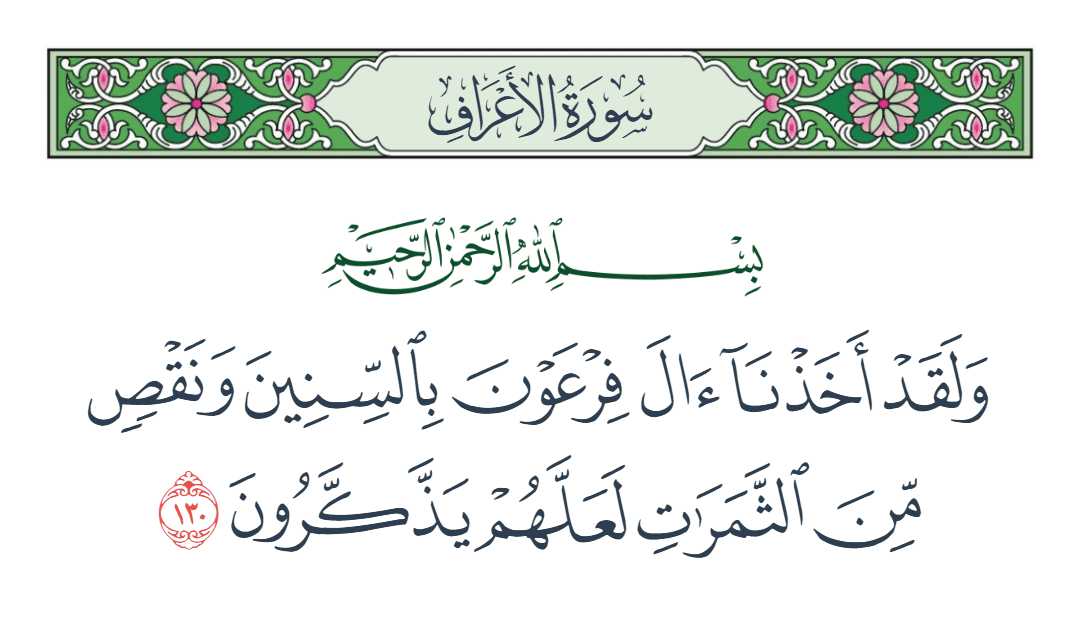 سُورَةُ الأَعْرَافِ
بِسْمِ ٱللَّهِ ٱلرَّحْمَٰنِ ٱلرَّحِيمِ
وَلَقَدْ أَخَذْنَآ ءَالَ فِرْعَوْنَ بِٱلسِّنِينَ وَنَقْصٍ
مِّنَ ٱلثَّمَرَٰتِ لَعَلَّهُمْ يَذَّكَّرُونَ ١٣٠